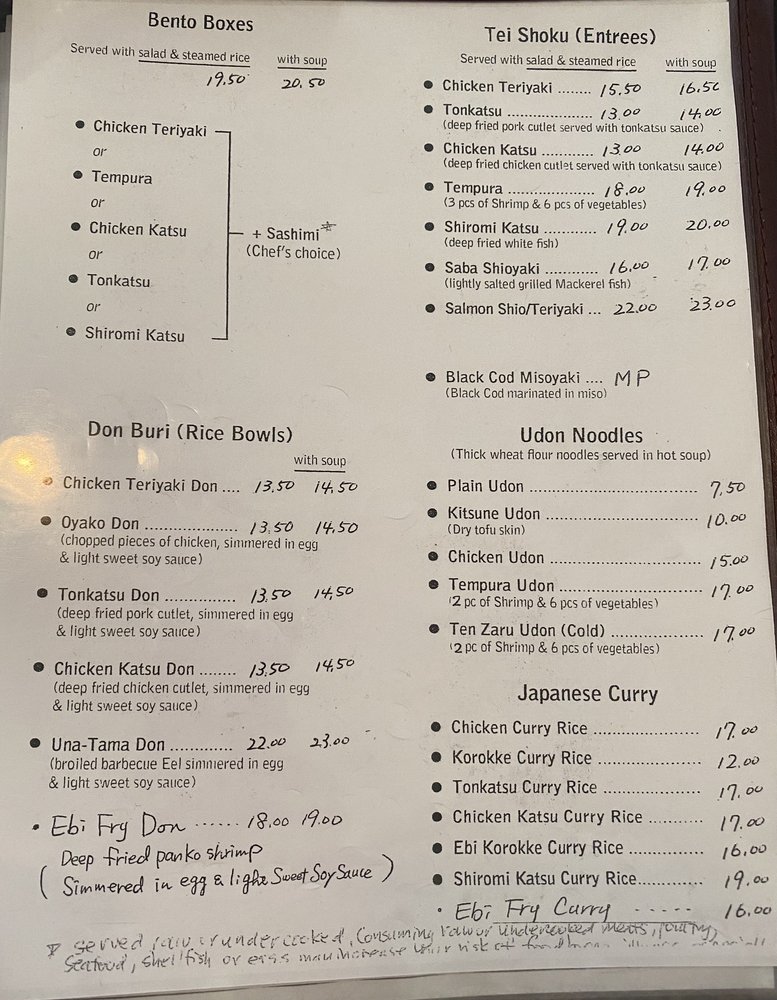 Bento Boxes
Served with salad & steamed rice with soup
19.50 20.50
• Chicken Teriyaki
or
• Tempura
or
• Chicken Katsu
or
• Tonkatsu
or
• Shiromi Katsu
+ Sashimi*
(Chef's choice)
Don Buri (Rice Bowls)
with soup
• Chicken Teriyaki Don .... 13.50 14.50
• Oyako Don .................... 13.50 14.50
(chopped pieces of chicken, simmered in egg
& light sweet soy sauce)
• Tonkatsu Don ............... 13.50 14.50
(deep fried pork cutlet, simmered in egg
& light sweet soy sauce)
• Chicken Katsu Don ........ 13.50 14.50
(deep fried chicken cutlet, simmered in egg
& light sweet soy sauce)
• Una-Tama Don ............. 22.00 23.00
(broiled barbecue Eel simmered in egg
& light sweet soy sauce)
• Ebi Fry Don ...... 18.00 19.00
Deep fried panko shrimp
(Simmered in egg & light Sweet Soy Sauce)
Tei Shoku (Entrees)
Served with salad & steamed rice with soup
• Chicken Teriyaki ........ 15.50 16.50
• Tonkatsu ..................... 13.00 14.00
(deep fried pork cutlet served with tonkatsu sauce)
• Chicken Katsu ............ 13.00 14.00
(deep fried chicken cutlet served with tonkatsu sauce)
• Tempura ..................... 18.00 19.00
(3 pcs of Shrimp & 6 pcs of vegetables)
• Shiromi Katsu ............ 19.00 20.00
(deep fried white fish)
• Saba Shioyaki ............ 16.00 17.00
(lightly salted grilled Mackerel fish)
• Salmon Shio/Teriyaki ... 22.00 23.00
• Black Cod Misoyaki .... MP
(Black Cod marinated in miso)
Udon Noodles
(Thick wheat flour noodles served in hot soup)
• Plain Udon ........................................ 7.50
• Kitsune Udon .................................... 10.00
(Dry tofu skin)
• Chicken Udon .................................... 15.00
• Tempura Udon .................................. 17.00
(2 pc of Shrimp & 6 pcs of vegetables)
• Ten Zaru Udon (Cold) ...................... 17.00
(2 pc of Shrimp & 6 pcs of vegetables)
Japanese Curry
• Chicken Curry Rice ......................... 17.00
• Korokke Curry Rice ......................... 12.00
• Tonkatsu Curry Rice ........................ 17.00
• Chicken Katsu Curry Rice ................ 17.00
• Ebi Korokke Curry Rice .................... 16.00
• Shiromi Katsu Curry Rice................. 19.00
• Ebi Fry Curry ----- 16.00
served raw or undercooked, Consuming raw or undercooked meats, poultry,
Seafood, shellfish or eggs may increase your risk of